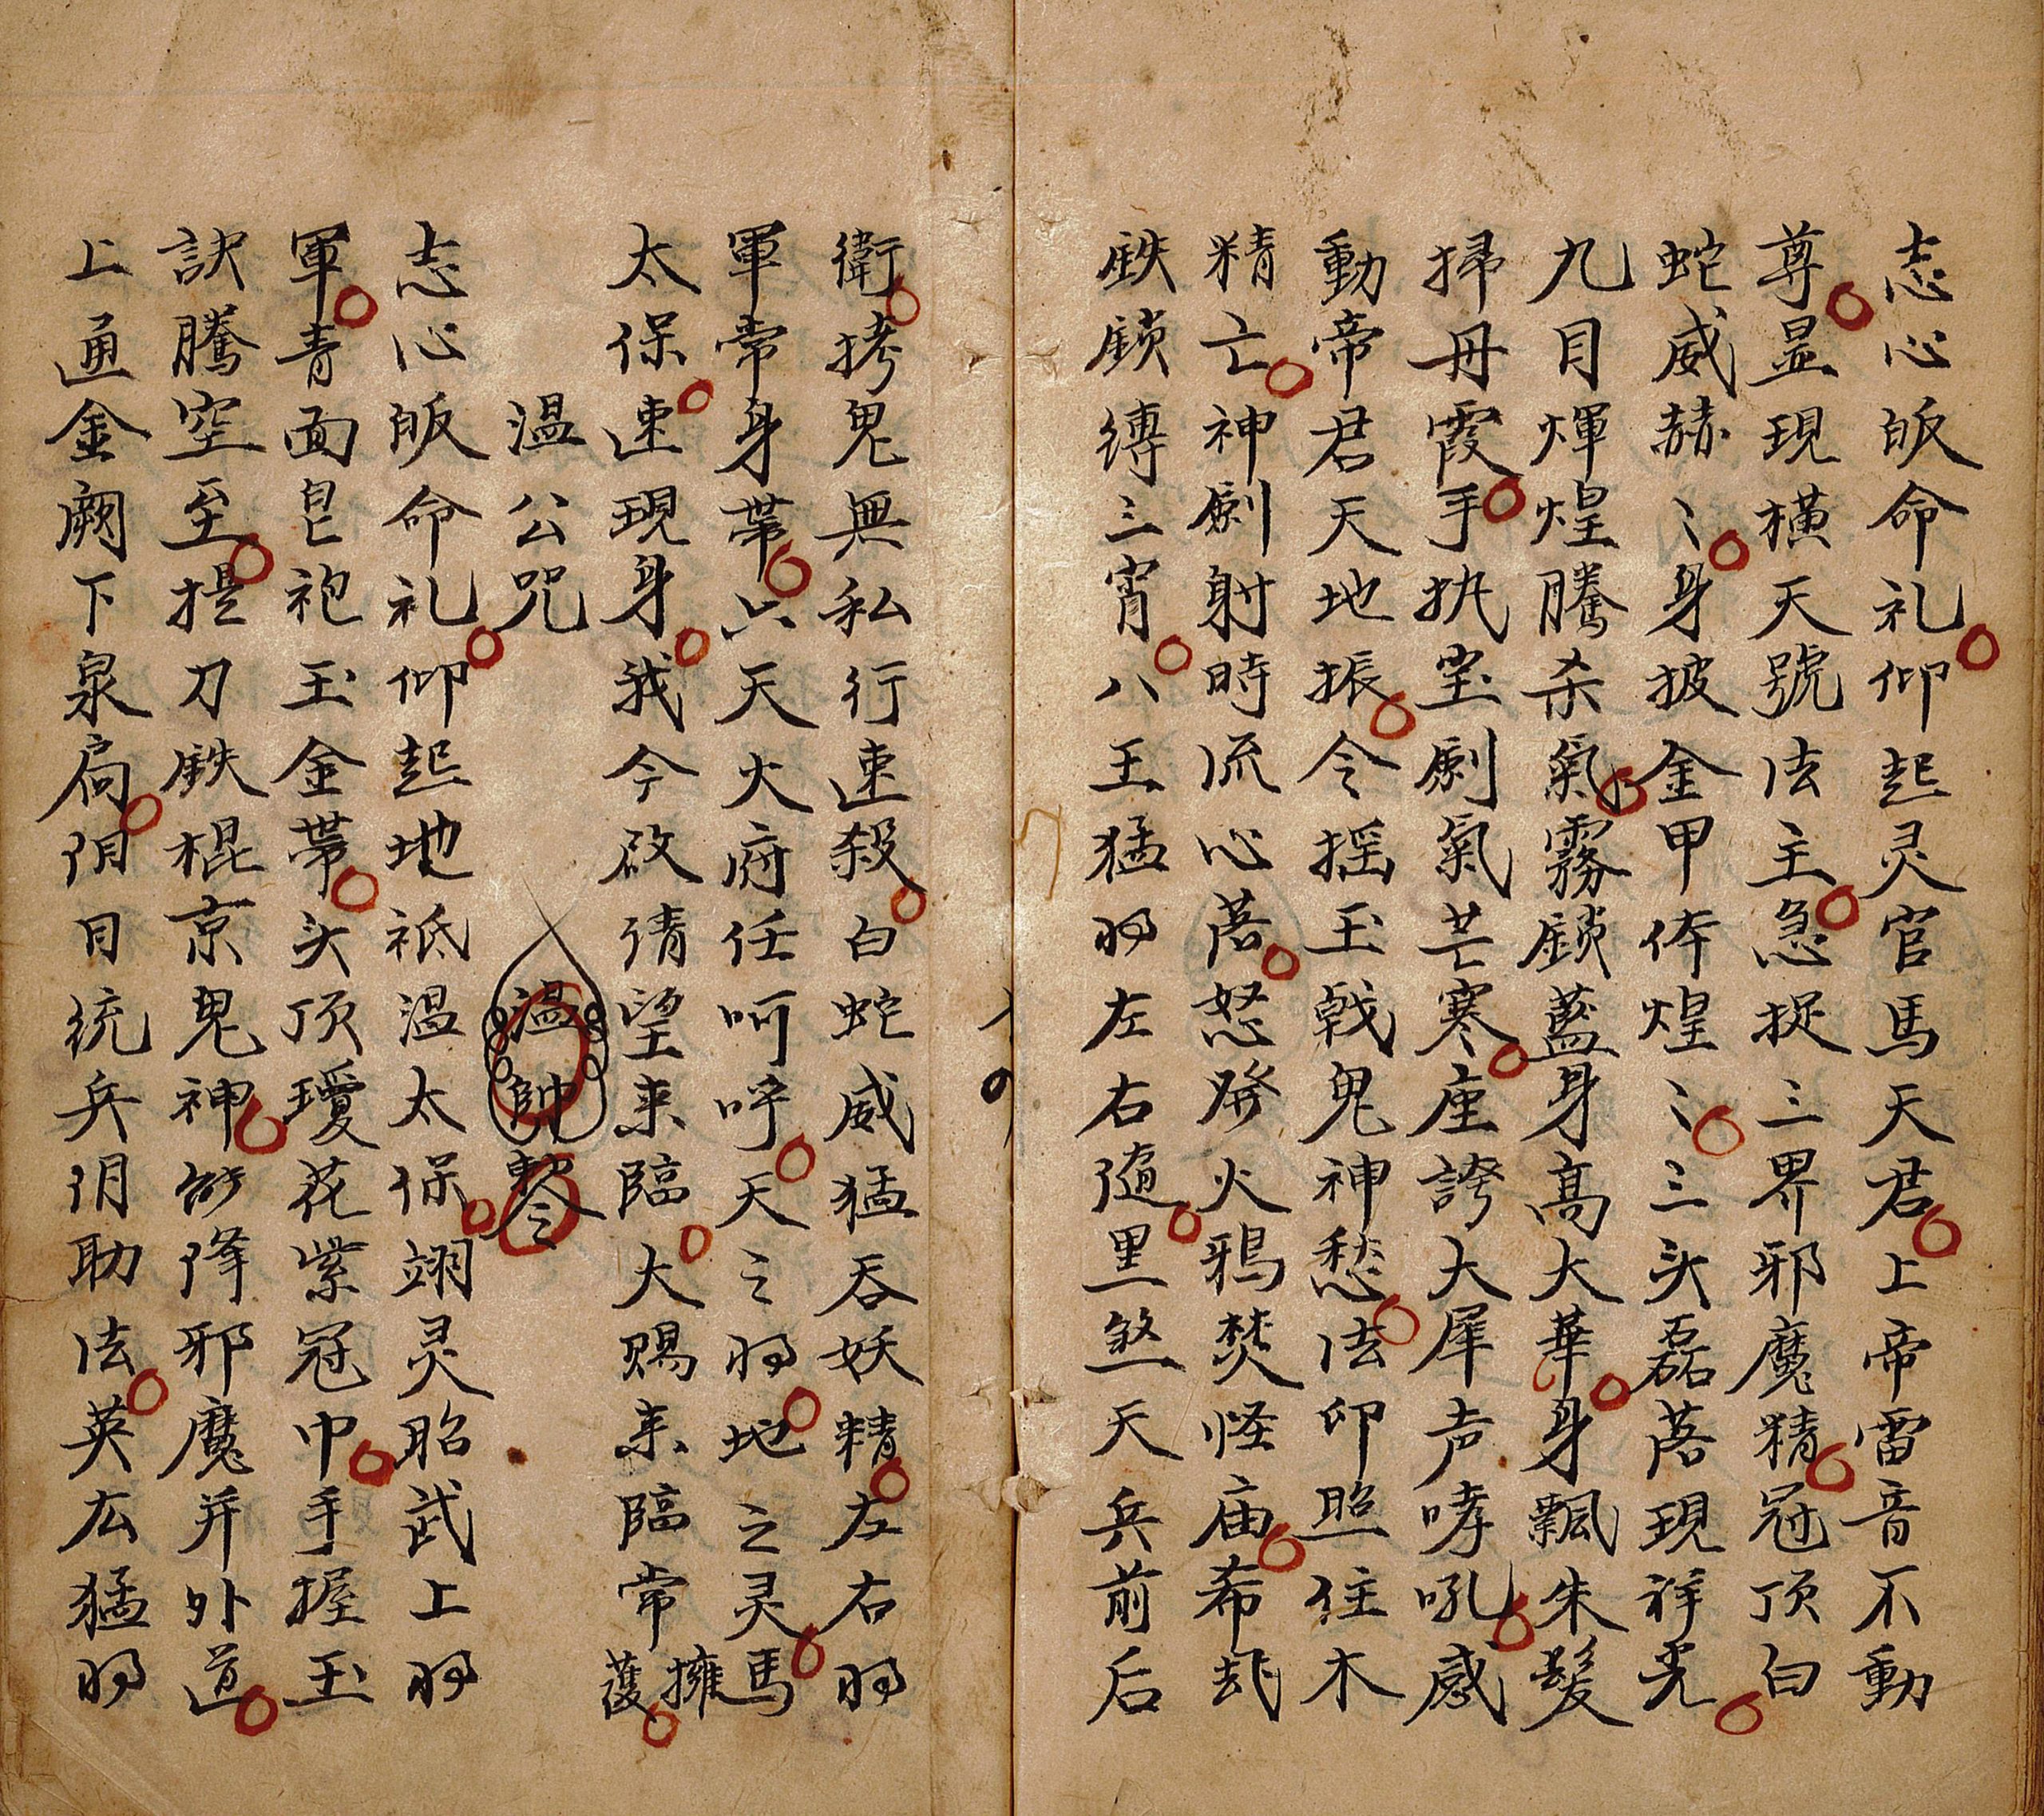 志心皈命礼仰起灵官馬天君上帝雷音不動
尊显現横天號法主急捉三界邪魔精冠顶白
蛇威赫〻身披金甲体煌〻三头磊落現祥光
九目煇煌騰杀氣霧鎖藍身高大華身飄朱髮
掃丹霞手执宝劍氣芒寒座誇大犀声哮吼感
動帝君天地振令摇玉戟鬼神愁法印照住木
精亡神劍射時流心落怒發火鴉焚怪庙希
鉄鎖縛三宵八王猛将左右随黑煞天兵前后
衛拷鬼無私行速殺白蛇威猛吞妖精左右将
軍常身帯六天火府任呵呼天之将地之灵馬
太保速現身我今啟请望来臨大赐来臨常擁護
温公咒
温帥
志心皈命礼仰起地祇温太保翊灵昭武上将
軍青面皂袍玉金帯头顶瓊花紫冠巾手握玉
訣騰空至提刀鉄棍京鬼神能降邪魔并外道
上通金阙下泉扃阴日统兵阴助法英広猛将